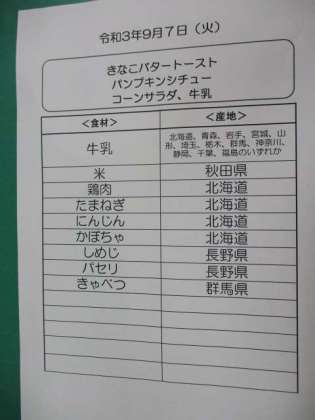 令和3年9月7日（火）
きなこバタートースト
パンプキンシチュー
コーンサラダ、牛乳
＜食材＞ ＜産地＞
牛乳 北海道、青森、岩手、宮城、山
形、埼玉、栃木、群馬、神奈川、
静岡、千葉、福島のいずれか
米 秋田県
鶏肉 北海道
たまねぎ 北海道
にんじん 北海道
かぼちゃ 北海道
しめじ 長野県
パセリ 長野県
きゃべつ 群馬県